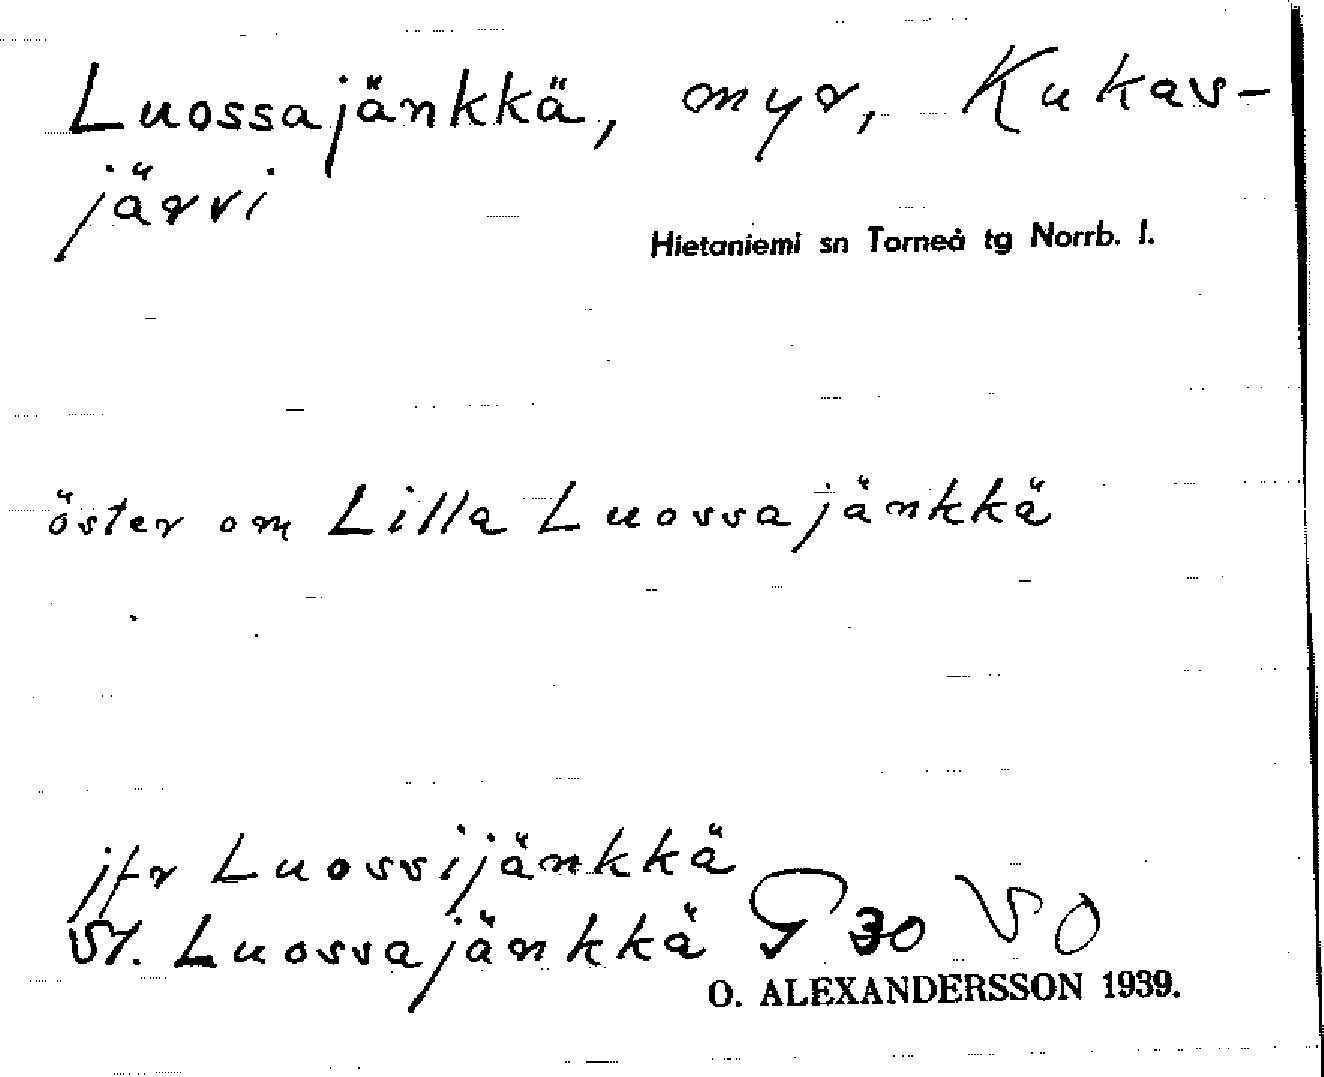 Luossajänkkä, myr, Kukas-
järvi
Hietaniemi sn Torneå tg Norrb. l.
öster om Lilla Luossajänkkä
jfr Luossijänkkä
St. Luossajänkkä G 30 SO
O. ALEXANDERSSON 1939.